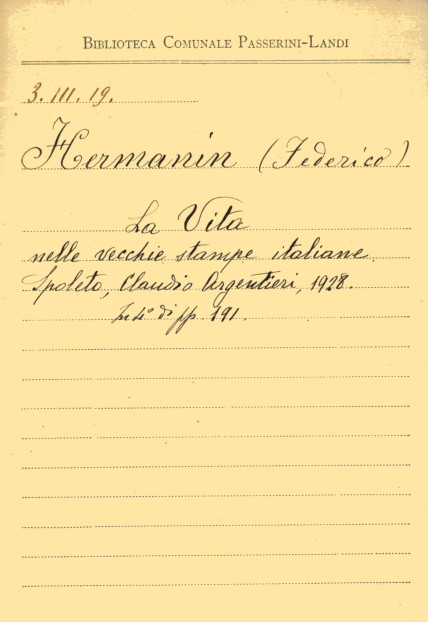 BIBLIOTECA COMUNALE PASSERINI-LANDI
3. III. 19.
Hermanin (Federico)
La Vita
nelle vecchie stampe italiane
Spoleto, Claudio Argentieri, 1928.
In 4° di pp. 191.